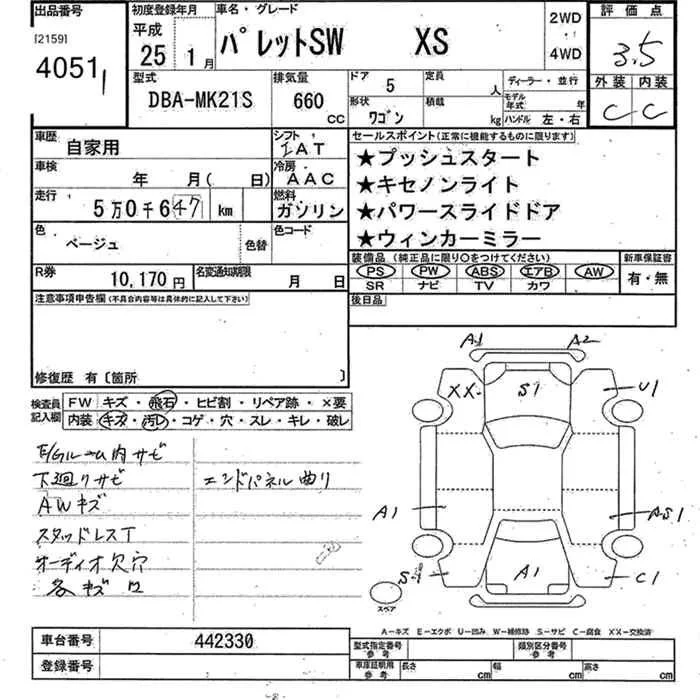 出品番号
[2159]
4051
初度登録年月
平成 25 1月
車名・グレード
パレットSW XS
2WD
4WD
評価点
3.5
型式
DBA-MK21S
排気量
660 CC
ドア 5
形状 ワゴン
定員 人
積載 kg
ディーラー・並行
モデル年式 年
ハンドル 左・右
外装 内装
C C
車歴 自家用
シフト IAT
車検 年 月( 日)
冷房 AAC
走行 5万0千647 km
燃料 ガソリン
色 ベージュ 色替
色コード
R券 10,170円
名変通知期限 月 日
セールスポイント(正常に機能するものに限ります)
★プッシュスタート
★キセノンライト
★パワースライドドア
★ウィンカーミラー
装備品 (純正品に限り○をつけてください)
PS PW ABS エアB AW
SR ナビ TV カワ
新車保証書
有・無
後日品
注意事項申告欄(不具合内容等は具体的に記入して下さい)
修復歴 有〔箇所 〕
検査員記入欄
FW キズ・飛石・ヒビ割・リペア跡・×要
内装 キズ・汚レ・コゲ・穴・スレ・キレ・破レ
E/Gルーム内サビ
下廻りサビ エンドパネル曲り
AWキズ
スタッドレスT
オーディオ欠穴
各キズ
A1 A2
XX S1 U1
A1 AS1
A1 C1
スペア
A-キズ E-エクボ U-凹み W-補修跡 S-サビ C-腐食 XX-交換済
車台番号 442330
登録番号
型式指定番号 参考
類別区分番号 参考
車庫証明用 参考 長さ cm 幅 cm 高さ cm